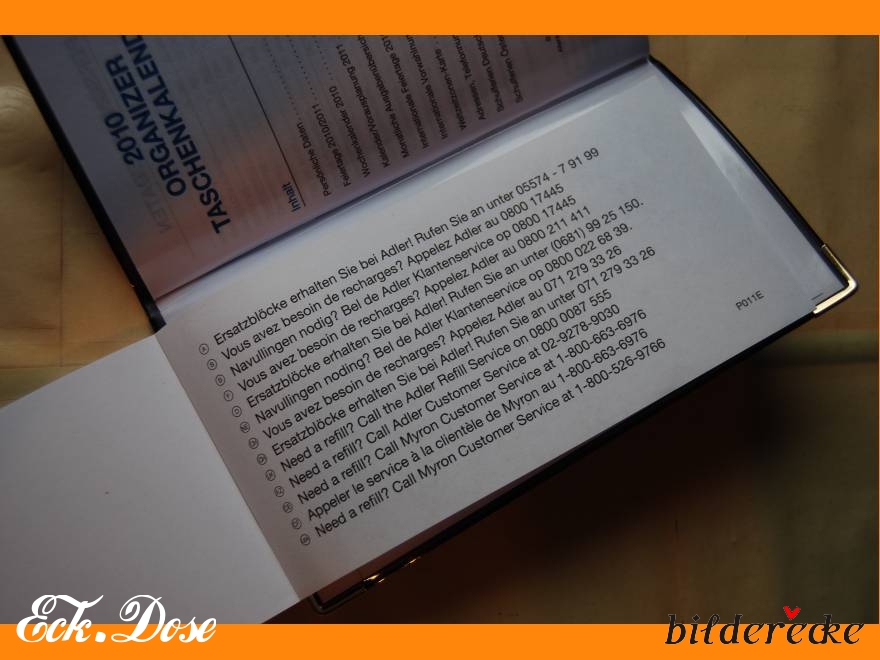 2010
ORGANIZER
TASCHENKALEND
Inhalt
Persönliche Daten
Feiertage 2010/2011
Wochenkalender 2010
Kalender/Vorausplanung 2011
Monatliche Ausgabenübersicht
Internationale Feiertage 201
Internationale Vorwahlnum
Weltzeitzonen - Karte
Adressen, Telefonnum
Schulferien Deutsch
Schulferien Öster
A Ersatzblöcke erhalten Sie bei Adler! Rufen Sie an unter 05574 - 7 91 99
B Vous avez besoin de recharges? Appelez Adler au 0800 17445
B Navullingen nodig? Bel de Adler Klantenservice op 0800 17445
F Vous avez besoin de recharges? Appelez Adler au 0800 211 411
D Ersatzblöcke erhalten Sie bei Adler! Rufen Sie an unter (0681) 99 25 150.
NL Navullingen noding? Bel de Adler Klantenservice op 0800 022 68 39.
CH Vous avez besoin de recharges? Appelez Adler au 071 279 33 26
CH Ersatzblöcke erhalten Sie bei Adler! Rufen Sie an unter 071 279 33 26
Need a refill? Call the Adler Refill Service on 0800 0087 555
Need a refill? Call Adler Customer Service at 02-9278-9030
Need a refill? Call Myron Customer Service at 1-800-663-6976
Appeler le service à la clientèle de Myron au 1-800-663-6976
Need a refill? Call Myron Customer Service at 1-800-526-9766
P011E
Eck.Dose
bilderecke